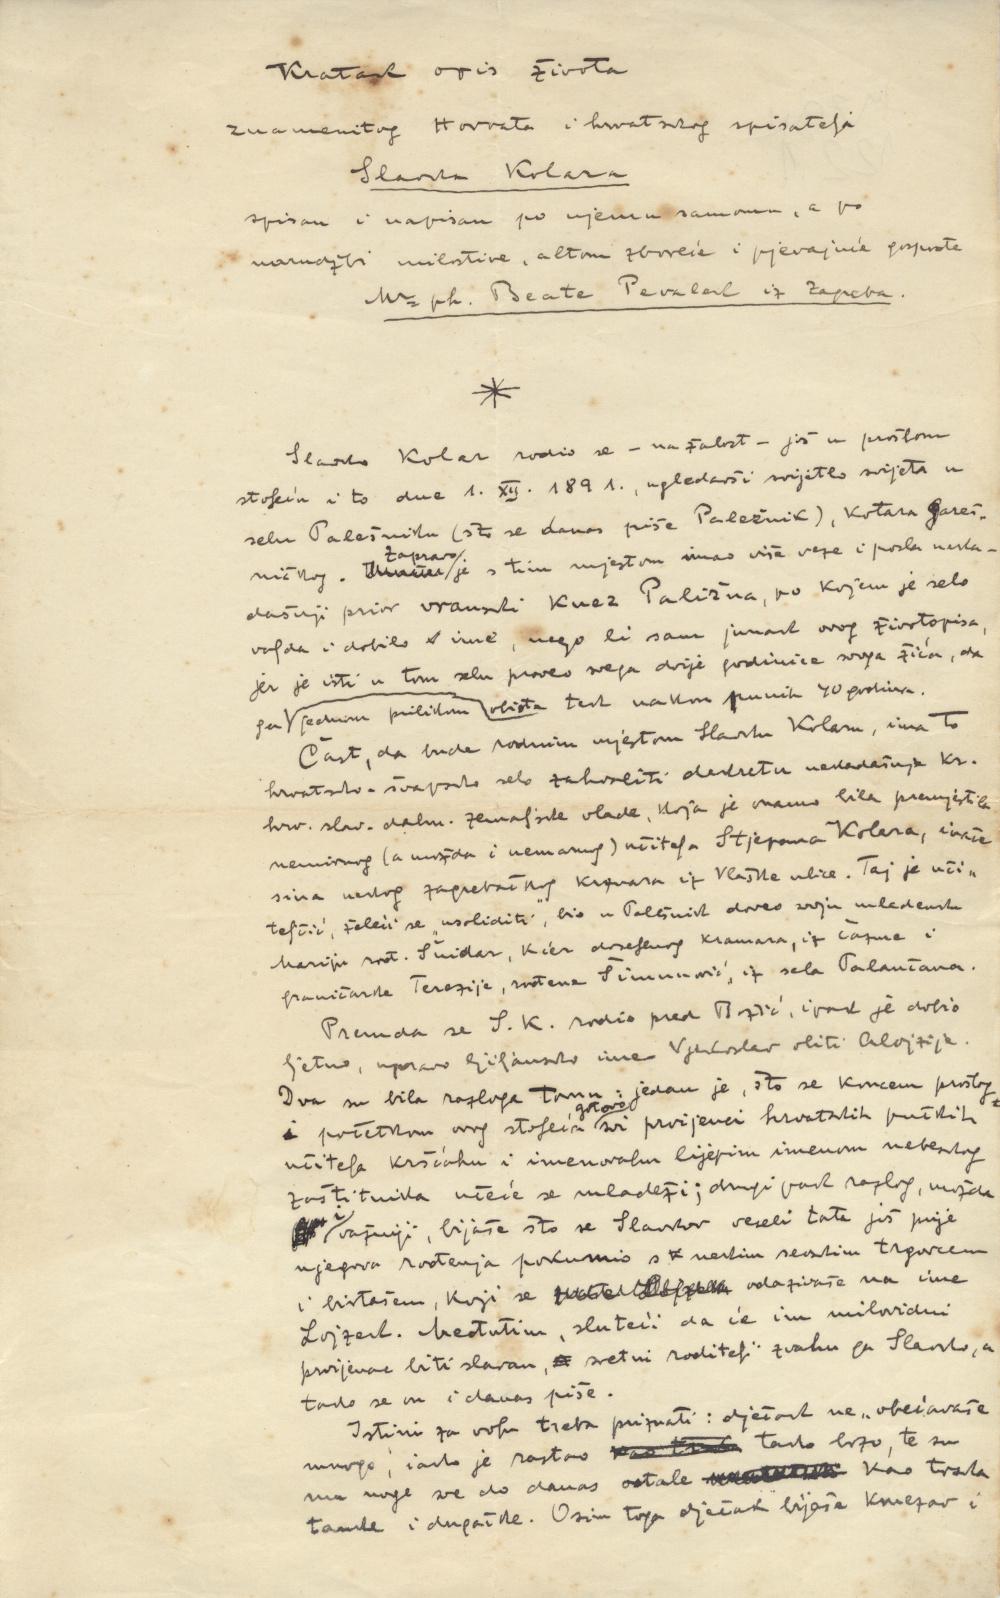 Kratak opis života
znamenitog Horvata i hrvatskog spisatelja
Slavka Kolara
spisan i napisan po njemu samomu, a po
narudžbi milostive, altom zboreće i pjevajuće gospođe
Mr ph. Beate Pevalek iz Zagreba.
*
Slavko Kolar rodio se – na žalost – još u prošlom
stoljeću i to dne 1. XII. 1891., ugledavši svijetlo svijeta u
selu Palešniku (što se danas piše Paležnik), kotara Gareš-
ničkog. Zapravo je s tim mjestom imao više veze i posla neka-
dašnji prior vranski knez Paližna, po kojem je selo
valjda i dobilo ime, nego li sam junak ovog životopisa,
jer je isti u tom selu proveo svega dvije godinice svoga žića, da
ga jednom prilikom obiđe tek nakon punih 40 godina.
Čast, da bude rodnim mjestom Slavku Kolaru, ima to
hrvatsko-švapsko selo zahvaliti dekretu nekadašnje kr.
hrv. slav. dalm. zemaljske vlade, koja je onamo bila premjestila
nemirnog (a možda i nemarnog) učitelja Stjepana Kolara, inače
sina nekog zagrebačkog krznara iz Vlaške ulice. Taj je uči-
teljčić, želeći se „usoliditi", bio u Palešnik doveo svoju mladenku
Mariju rođ. Šnidar, kćer doseljenog kramara, iz Čazme i
graničarke Terezije, rođene Šimunović, iz sela Palančana.
Premda se S. K. rodio pred Božić, ipak je dobio
ljetno, upravo ljiljansko ime Vjekoslav oliti Alojzije.
Dva su bila razloga tomu: jedan je, što se koncem prošlog
i početkom ovog stoljeća gotovo svi prvijenci hrvatskih pučkih
učitelja kršćahu i imenovahu lijepim imenom nebeskog
zaštitnika učeće se mladeži; drugi pak razlog, možda
i važniji, bijaše što se Slavkov veseli tata još prije
njegova rođenja pokumio s nekim seoskim trgovcem
i birtašem, koji se odazivaše na ime
Lojzek. Međutim, sluteći da će im milovidni
prvijenac biti slavan, sretni roditelji zvahu ga Slavko, a
tako se on i danas piše.
Istini za volju treba priznati: dječak ne „obećavaše
mnogo", iako je rastao tako brzo, te su
mu noge sve do danas ostale kao trska
tanke i dugačke. Osim toga dječak bijaše kmezav i